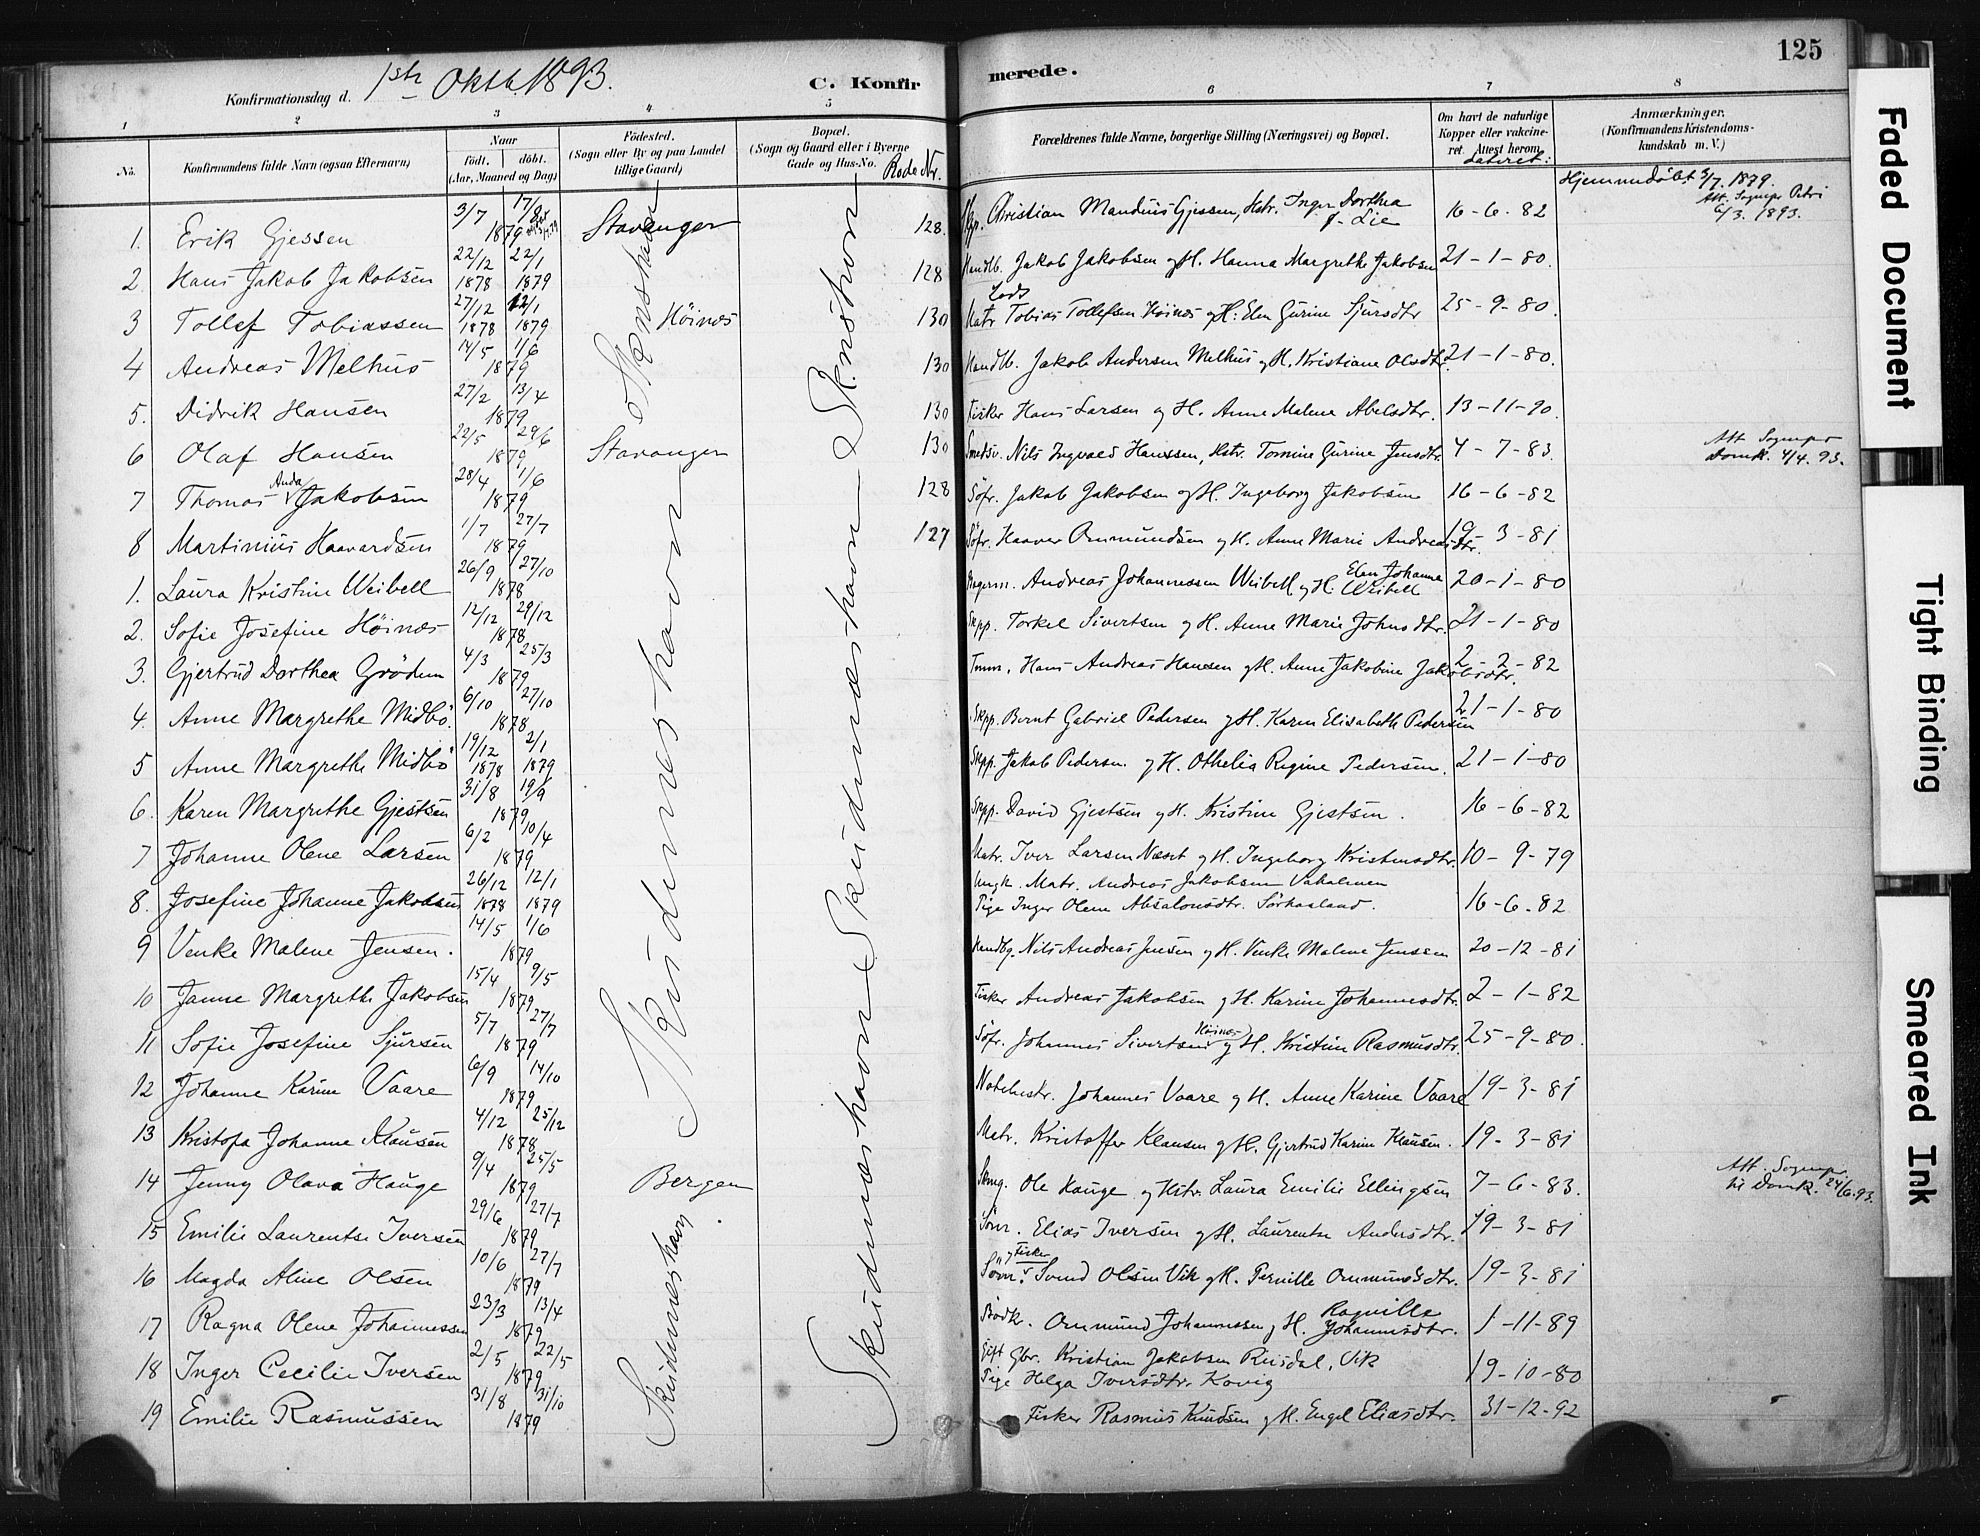 125
Konfirmationsdag d. 1ste Oktb. 1893.
C. Konfirmerede.
1 2 3 4 5 6 7 8
No.
Konfirmandens fulde Navn (ogsaa Efternavn)
Naar
født. døbt.
(Aar, Maaned og Dag)
Fødested.
(Sogn eller By og paa Landet
tillige Gaard)
Bopæl.
(Sogn og Gaard eller i Byerne
Gade og Hus-No. Rode Nr.
Forældrenes fulde Navne, borgerlige Stilling (Næringsvei) og Bopæl.
Om havt de naturlige
Kopper eller vakcine-
ret. Attest herom
dateret:
Anmærkninger.
(Konfirmandens Kristendoms-
kundskab m. V.)
Hjemmedøbt 3/7 1879.
Att. Sognepr Petri
6/3. 1893.
1. Erik Gjessen 3/7 17/8 1879 Stavanger 128. Skp. Christian Mandius Gjessen, Hstr. Inger Dorthea f. Lie 16-6-82
2. Hans Jakob Jakobsen 22/12 1878 22/1 1879 128 Handlb. Jakob Jakobsen og H. Hanna Margrethe Jakobsen 21-1-80.
3 Tollef Tobiassen 27/12 1878 12/1 1879 Høines 130 Lods Matr Tobias Tollefsen Høines og H: Elen Gurine Sjursdtr 25-9-80.
4 Andreas Melhus 14/5 1/6 1879 130 Handlb. Jakob Andersen Melhus og H. Kristiane Olsdtr. 21-1-80.
5. Didrik Hansen 27/2 13/4 1879 130 Fisker Hans Larsen og H. Anne Malene Abelsdtr. 13-11-90.
6 Olaf Hansen 22/5 29/6 1879 Stavanger 130 Smedsv. Nils Ingvald Hanssen, Hstr. Tomine Gurine Jensdtr. 4-7-83. Att Sognepr Domk. 4/4. 93.
7 Thomas Anda Jakobsen 28/4 1/6 1879 128 Søfr. Jakob Jakobsen og H. Ingeborg Jakobsen 16-6-82
8 Martinius Haavardsen 1/7 27/7 1879 127 Søfr. Haaver Ommundsen og H. Anne Marie Andreasdtr. 19-3-81
1. Laura Kristine Weibell 26/9 27/10 1878 Bagerm. Andreas Johannessen Weibell og H. Elen Johanne Weibell 20-1-80
2. Sofie Josefine Høines 12/12 29/12 1878 Skpp. Torkel Sivertsen og H. Anne Marie Johnsdtr. 21-1-80
3. Gjertrud Dorthea Grødem 4/3 25/3 1879 Tmm. Hans Andreas Hansen og H. Anne Jakobine Jakobsdtr. 2-2-82
4. Anne Margrethe Midbø. 6/10 27/10 1878 Skpp. Bernt Gabriel Pedersen og H. Karen Elisabeth Pedersen 21-1-80
5 Anne Margrethe Midbø 19/12 1878 2/1 1879 Skpp. Jakob Pedersen og H. Othelia Regine Pedersen. 21-1-80
6. Karen Margrethe Gjestsen 31/8 19/9 1879 Skpp. David Gjestsen og H. Kristine Gjestsen. 16-6-82
7 Johanne Olene Larsen 6/2 10/4 1879 Matr. Iver Larsen Næset og H. Ingeborg Kristensdtr. 10-9-79
8. Josefine Johanne Jakobsen 26/12 1878 12/1 1879 Ungk. Matr. Andreas Jakobsen Vaholmen
Pige Inger Olene Absalonsdtr. Sørhaaland. 16-6-82
9 Venke Malene Jensen. 14/5 1/6 1879 Handbg. Nils Andreas Jensen og H. Venke Malene Jenssen 20-12-81
10 Janne Margrethe Jakobsen 15/4 9/5 1879 Fisker Andreas Jakobsen og H. Karine Johannesdtr. 2-1-82
11 Sofie Josefine Sjursen 5/7 27/7 1879 Søfr. Johannes Sivertsen Høines og H. Kristine Rasmusdtr. 25-9-80.
12 Johanne Karine Vaare 6/9 14/10 1879 Johannes Vaare og H. Anne Karine Vaare 19-3-81
13 Kristofa Johanne Klausen 4/12 25/12 1878 Matr. Kristoffer Klausen og H. Gjertrud Karine Klausen. 19-3-81
14 Jenny Olava Hauge 9/4 25/5 1879 Bergen Ole Hauge og Hstr. Laura Emilie Ellingsen 7-6-83. Att. Sognepr. til Domk. 24/6. 93.
15 Emilie Laurentse Iversen 29/6 27/7 1879 Elias Iversen og H. Laurentse Andersdtr. 19-3-81
16 Magda Aline Olsen 10/6 27/7 1879 og Fisker Svend Olsen Vik og H. Pernille Ommundsdtr. 19-3-81
17 Ragna Olene Johannessen 23/3 13/4 1879 Bødk. Ommund Johannessen og H. Ragnille Johannesdtr. 1-11-89
18 Inger Cecilie Iversen 2/5 22/5 1879 Gift Gbr. Kristian Jakobsen Risdal, Vik
Pige Helga Iversdtr. Kovig 19-10-80
19 Emilie Rasmussen 31/8 31/10 1879 Fisker Rasmus Knudsen og H. Engel Eliasdtr. 31-12-92
Skudeneshavn
Skudeneshavn
Skudeneshavn
Skudeneshavn
Faded Document
Tight Binding
Smeared Ink